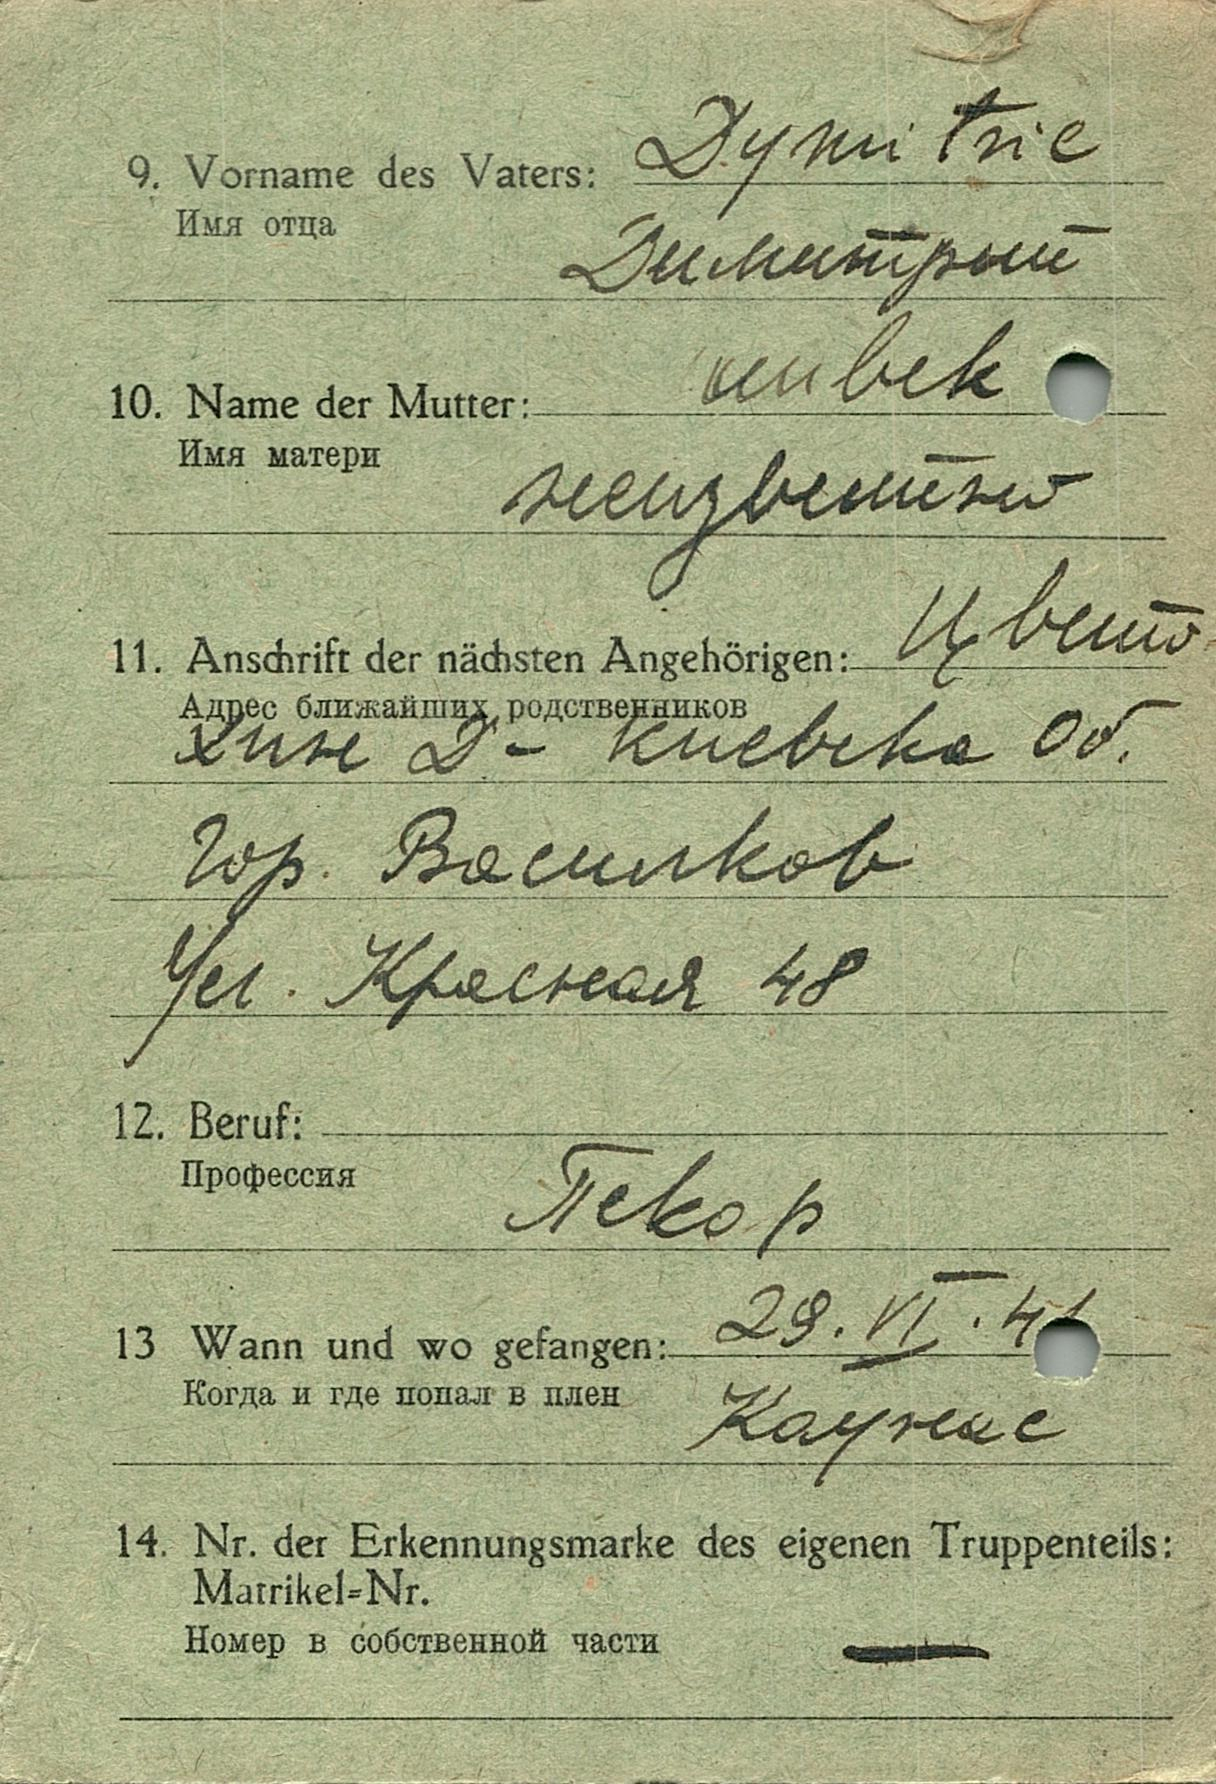 9. Vorname des Vaters: Dymitrie
Имя отца
Димитрий
10. Name der Mutter: unbek
Имя матери
неизвестно
11. Anschrift der nächsten Angehörigen: Цвето
Адрес ближайших родственников
Д- Киевска Об.
гор. Васильков
Ул. Красная 48
12. Beruf:
Профессия
Пекар
13 Wann und wo gefangen: 29. VI. 41
Когда и где попал в плен
Каунас
14. Nr. der Erkennungsmarke des eigenen Truppenteils:
Matrikel=Nr.
Номер в собственной части
—